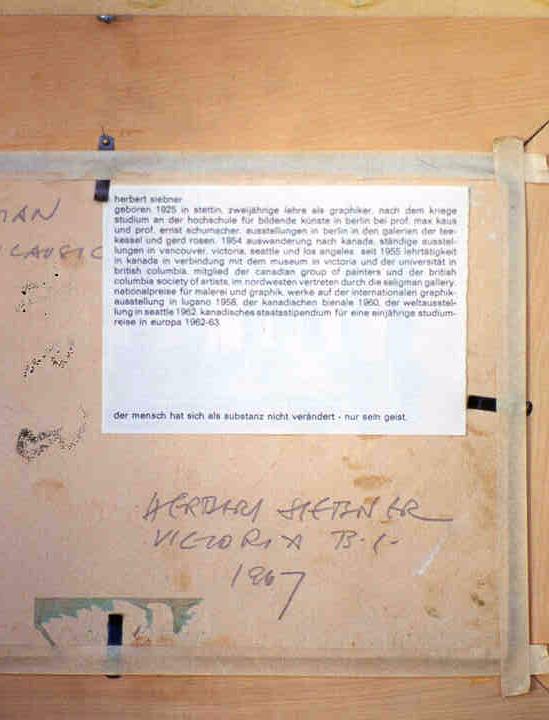 herbert siebner
geboren 1925 in stettin. zweijährige lehre als graphiker. nach dem kriege
studium an der hochschule für bildende künste in berlin bei prof. max kaus
und prof. ernst schumacher. ausstellungen in berlin in den galerien der tee-
kessel und gerd rosen. 1954 auswanderung nach kanada. ständige ausstel-
lungen in vancouver, victoria, seattle und los angeles. seit 1955 lehrtätigkeit
in kanada in verbindung mit dem museum in victoria und der universität in
british columbia. mitglied der canadian group of painters und der british
columbia society of artists, im nordwesten vertreten durch die seligman gallery.
nationalpreise für malerei und graphik, werke auf der internationalen graphik-
ausstellung in lugano 1958, der kanadischen bienale 1960, der weltausstel-
lung in seattle 1962. kanadisches staatsstipendium für eine einjährige studium-
reise in europa 1962-63.
der mensch hat sich als substanz nicht verändert - nur sein geist.
HERBERT SIEBNER
VICTORIA B.C.
1967